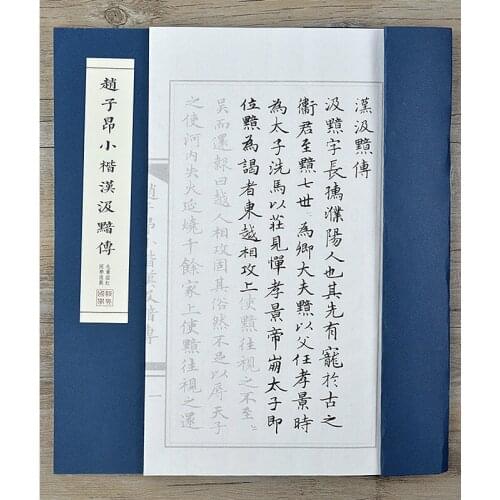 趙子昂小楷漢汲黯傳
漢汲黯傳
汲黯字長孺濮陽人也其先有寵於古之
衞君至黯七世為卿大夫黯以父任孝景時
為太子洗馬以莊見憚孝景帝崩太子即
位黯為謁者東越相攻上使黯往視之不至
吳而還報曰越人相攻固其俗然不足以辱天子
之使河内失火延燒千餘家上使黯往視之還
趙子昂小楷漢汲黯傳
一